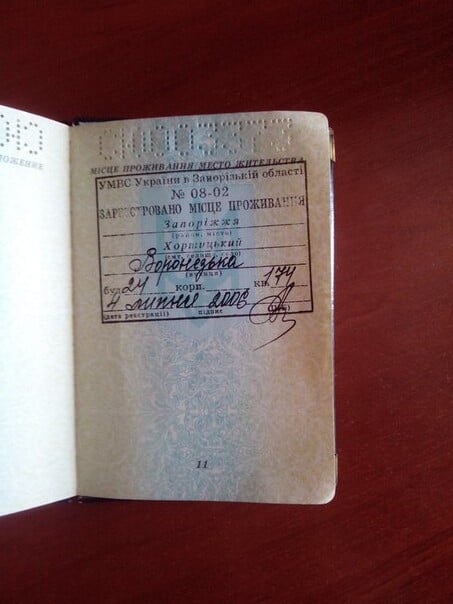 ложение
МІСЦЕ ПРОЖИВАННЯ МЕСТО ЖИТЕЛЬСТВА
УМВС України в Запорізькій області
№ 08-02
ЗАРЕЄСТРОВАНО МІСЦЕ ПРОЖИВАННЯ
Запоріжжя
(район, місто)
Хортицький
Воронезька
(вулиця)
буд 24 корп. кв. 174
4 липня 2006
(дата реєстрації) підпис
11